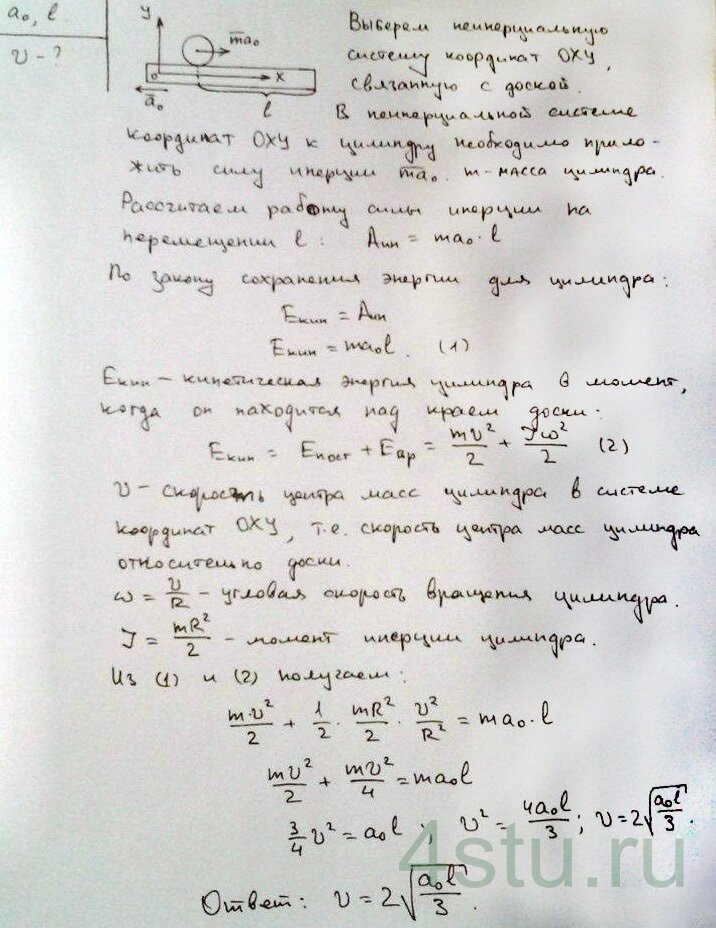 a₀, l
v - ?
y
ma₀
0
x
a₀
l
Выберем неинерциальную
систему координат OXY,
связанную с доской.
В неинерциальной системе
координат OXY к цилиндру необходимо прило-
жить силу инерции ma₀. m - масса цилиндра.
Рассчитаем работу силы инерции на
перемещении l: Aин = ma₀·l
По закону сохранения энергии для цилиндра:
Eкин = Aин
Eкин = ma₀l. (1)
Eкин - кинетическая энергия цилиндра в момент,
когда он находится над краем доски:
Eкин = Eпост + Eвр = mv²/2 + Jω²/2 (2)
v - скорость центра масс цилиндра в системе
координат OXY, т.е. скорость центра масс цилиндра
относительно доски.
ω = v/R - угловая скорость вращения цилиндра.
J = mR²/2 - момент инерции цилиндра.
Из (1) и (2) получаем:
m·v²/2 + 1/2 · mR²/2 · v²/R² = ma₀·l
mv²/2 + mv²/4 = ma₀l
3/4 v² = a₀l ; v² = 4a₀l/3 ; v = 2√(a₀l/3).
4stu.ru
Ответ: v = 2√(a₀l/3).